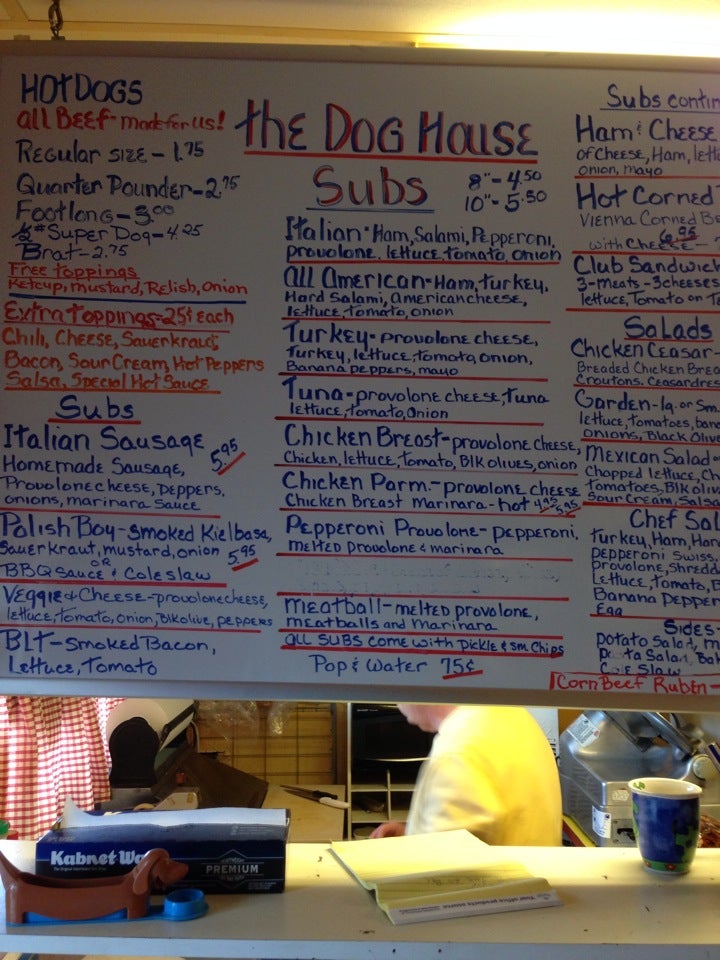 HOT DOGS
all BEEF - made for us!
Regular size - 1.75
Quarter Pounder - 2.75
Footlong - 3.00
½# Super Dog - 4.25
Brat - 2.75
Free toppings
Ketcup, mustard, Relish, Onion
Extra toppings - 25¢ each
Chili, Cheese, Sauerkraut,
Bacon, Sour Cream, Hot Peppers
Salsa, Special Hot Sauce
Subs
Italian Sausage 5.95
Homemade Sausage,
Provolone cheese, peppers,
onions, marinara sauce
Polish Boy - smoked Kielbasa,
sauerkraut, mustard, onion 5.95
OR
BBQ sauce & Coleslaw
Veggie & Cheese - provolone cheese,
lettuce, tomato, onion, Blk olive, peppers
BLT - Smoked Bacon,
Lettuce, Tomato
the DOG HOUSE
Subs
8" - 4.50
10" - 5.50
Italian - Ham, Salami, Pepperoni,
provolone, lettuce, tomato, onion
all American - Ham, turkey,
Hard Salami, American cheese,
lettuce, Tomato, onion
Turkey - provolone cheese,
Turkey, lettuce, tomato, onion,
Banana peppers, mayo
Tuna - provolone cheese, tuna
lettuce, tomato, onion
Chicken Breast - provolone cheese,
Chicken, lettuce, tomato, Blk olives, onion
Chicken Parm. - provolone cheese
Chicken Breast marinara - hot 4.95 5.95
Pepperoni Provolone - pepperoni,
melted provolone & marinara
meatball - melted provolone,
meatballs and Marinara
all SUBS come with Pickle & sm. Chips
Pop & Water 75¢
Subs contin
Ham & Cheese
of Cheese, Ham, lett
onion, mayo
Hot Corned
Vienna Corned Be
6.95
with Cheese - 7
Club Sandwich
3-meats - 3 cheeses
lettuce, Tomato on T
Salads
Chicken Ceasar -
Breaded Chicken Brea
Croutons, Ceasar dres
Garden - lg. or Sm
lettuce, tomatoes, ban
onions, Black Olive
Mexican Salad
Chopped lettuce, Ch
Tomatoes, Blk olives
Sour Cream, Salsa
Chef Sal
turkey, Ham, Har
pepperoni Swiss
provolone, shredd
Lettuce, tomato,
Banana Pepper
Egg
Sides -
Potato Salad, m
Pasta Salad, Bak
Cole Slaw
Corn Beef Ruben -
Kabnet Wa
PREMIUM
Your office products source